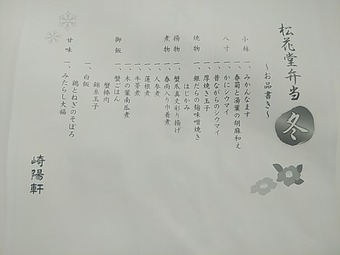 松花堂弁当 冬
〜お品書き〜
小鉢 一、みかんなます
一、春菊と湯葉の胡麻和え
八寸 一、かにシウマイ
一、昔ながらのシウマイ
一、厚焼き玉子
焼物 一、銀だらの麹味噌焼き
はじかみ
揚物 一、蟹爪真丈彩り揚げ
煮物 一、春雨入り巾着煮
一、人参煮
一、蓮根煮
一、牛蒡煮
一、木の葉南瓜煮
御飯 一、蟹ごはん
蟹棒肉
錦糸玉子
一、白飯
鶏とねぎのそぼろ
甘味 一、みたらし大福
崎陽軒